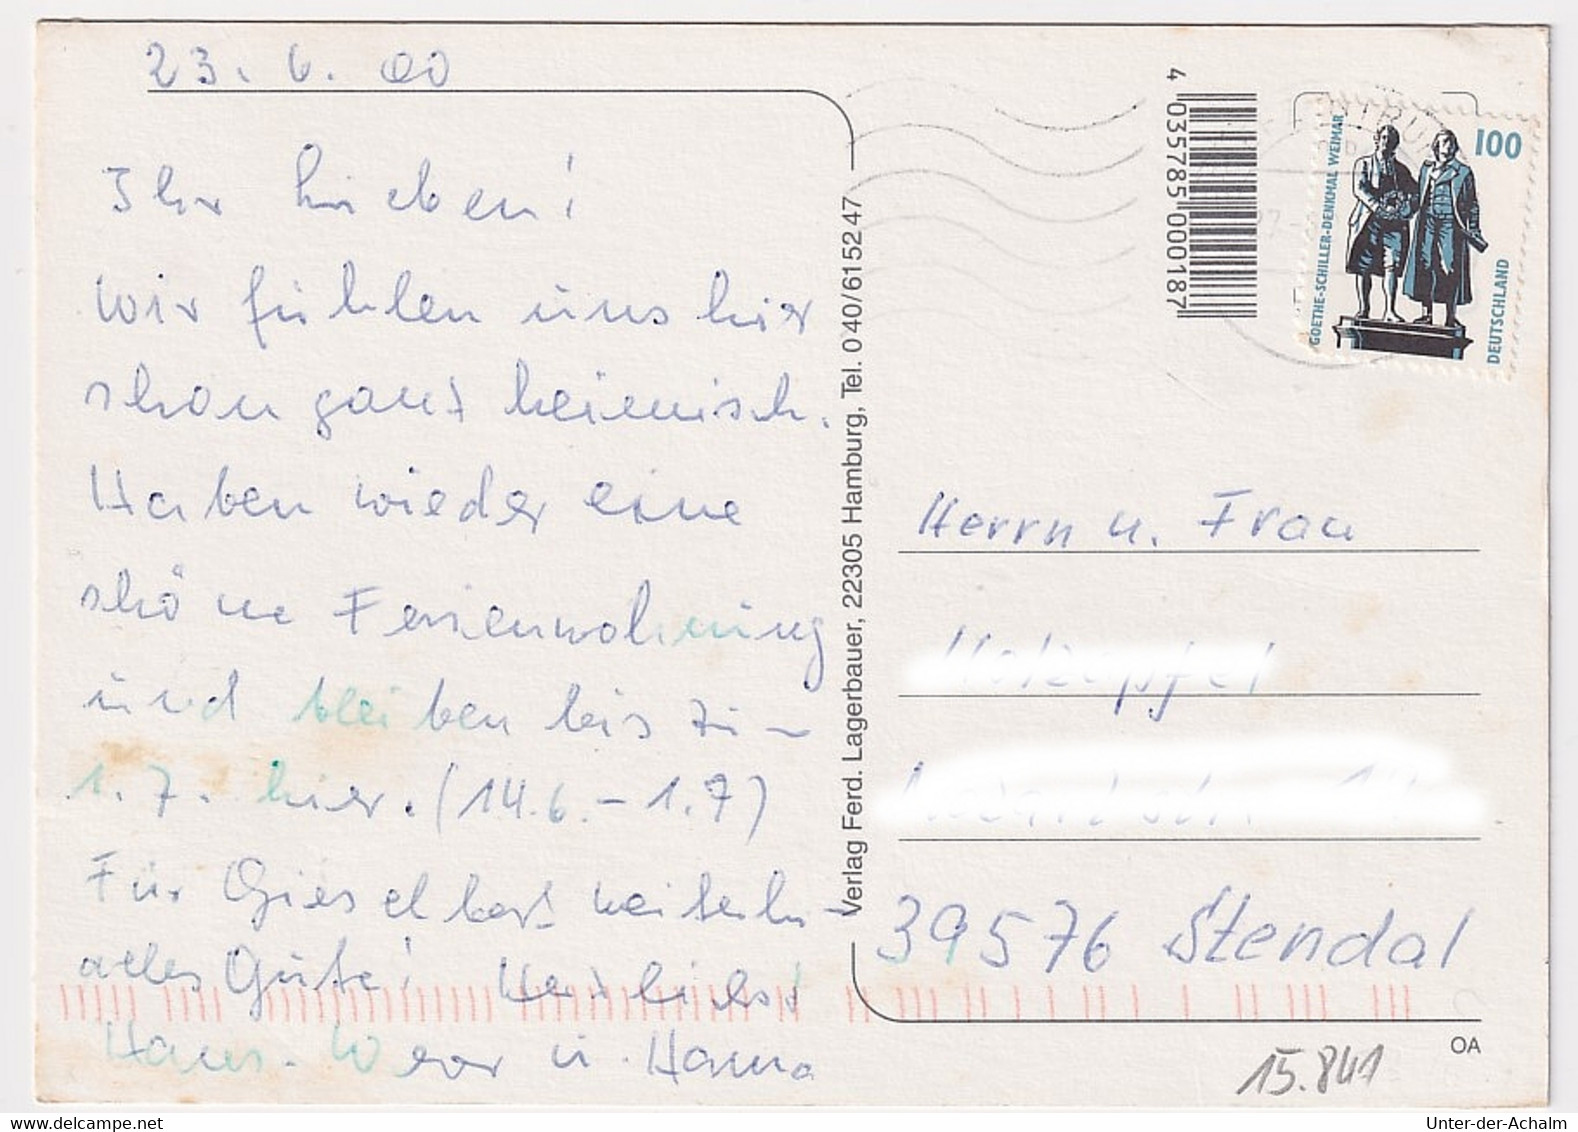 23. 6. 00
Ihr Lieben!
Wir fühlen uns hier
schon ganz heimisch.
Haben wieder eine
schöne Ferienwohnung
und bleiben bis zu
1. 7. hier. (14.6. – 1.7)
Für Gieselbert weiterhin
alles Gute! Herzlichst
Hans-Wer u. Hanna
Verlag Ferd. Lagerbauer, 22305 Hamburg, Tel. 040/6152 47
4 035785 000187
GOETHE-SCHILLER-DENKMAL WEIMAR
100
DEUTSCHLAND
Herrn u. Frau
39576 Stendal
OA
15.841
www.delcampe.net
Unter-der-Achalm